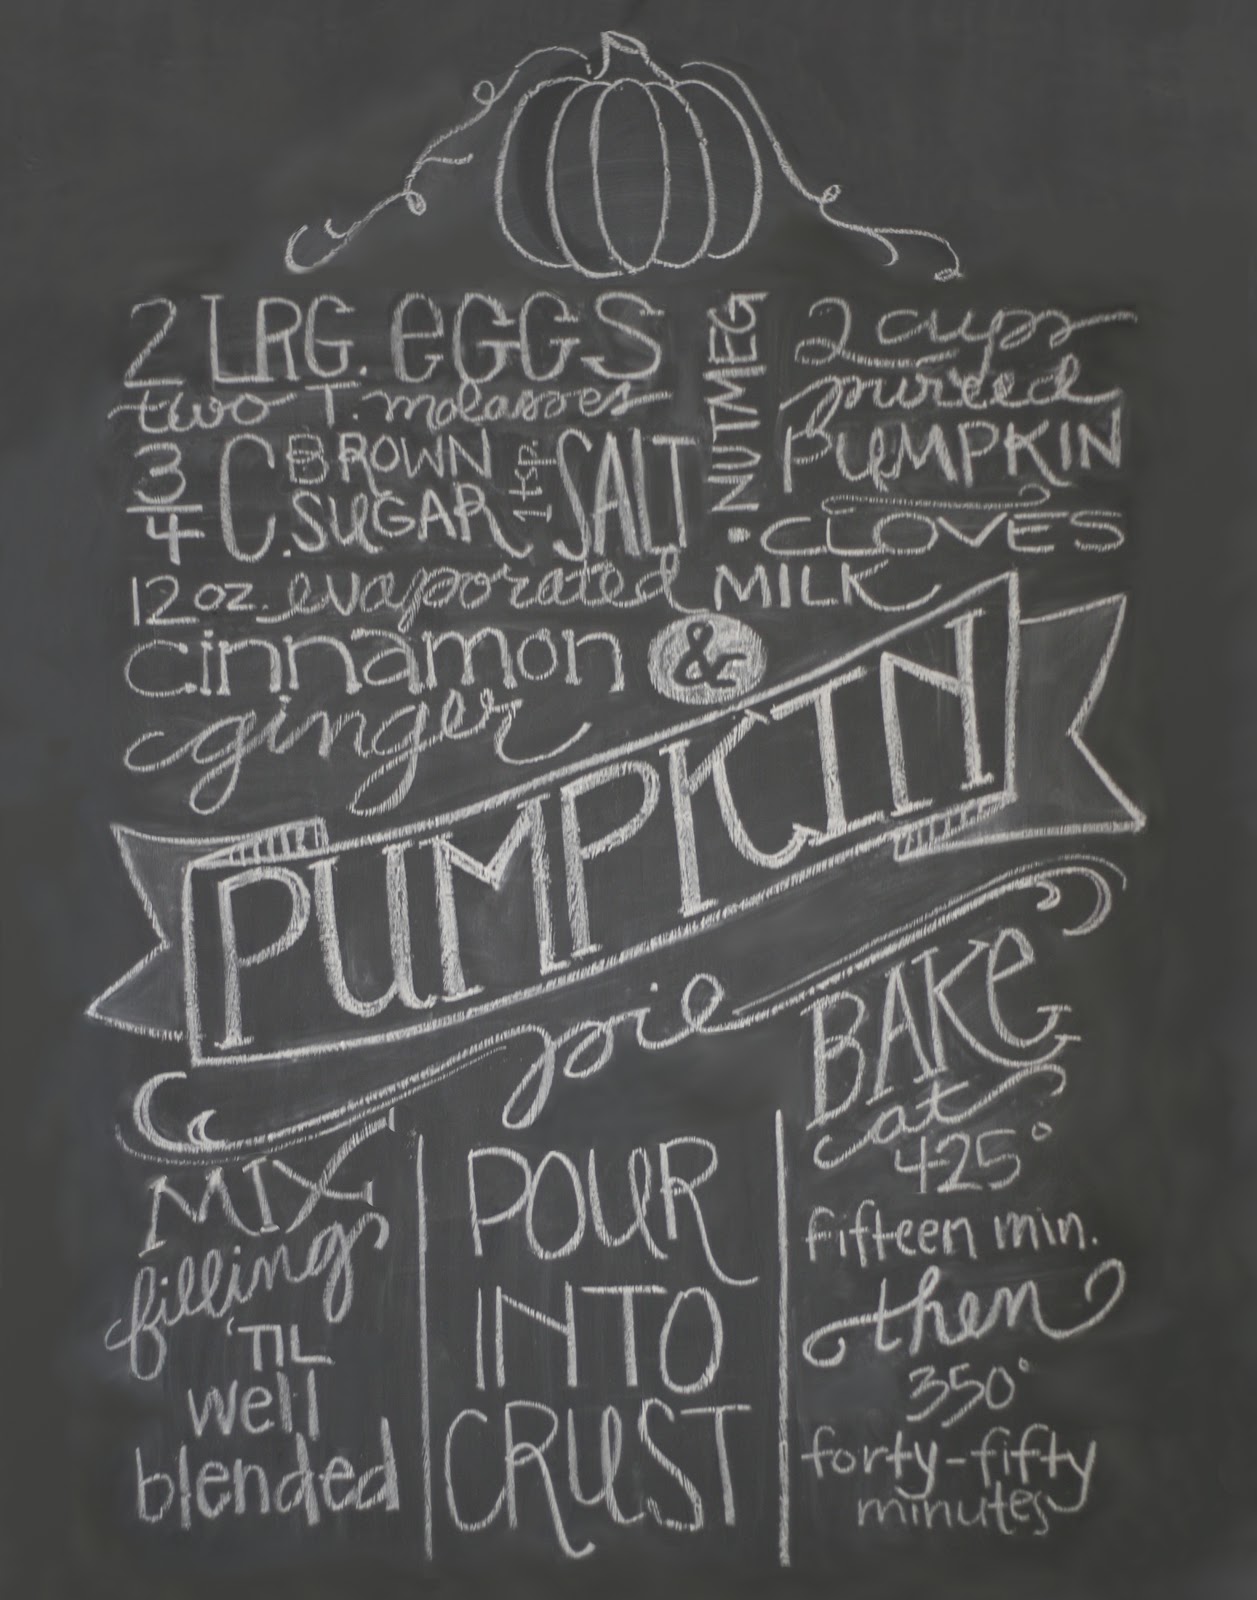 2 LRG. eGGS
two T. molasses
3/4 C. BROWN SUGAR 1 tsp. SALT
• NUTMEG
2 cups
puréed
PUMPKIN
• CLOVES
12 oz. evaporated MILK
cinnamon &
ginger
PUMPKIN
pie
MIX
fillings
'TIL
well
blended
POUR
INTO
CRUST
BAKe
at
425°
fifteen min.
then
350°
forty-fifty
minutes